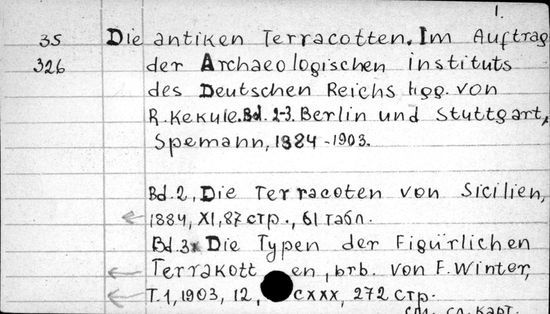 1.
35 Die antiken Terracotten. Im Auftrag
326 der Archaeologischen instituts
des Deutschen Reichs hgg. von
R. Kekule. Bd. 2-3. Berlin und Stuttgart,
Spemann, 1884-1903.
Bd. 2, Die Terracoten von Sicilien,
1884, XI, 87 стр., 61 табл.
Bd. 3. Die Typen der Figürlichen
Terrakotten, brb. von F. Winter,
T. 1, 1903, 12, CXXX, 272 стр.
см. сл. карт.